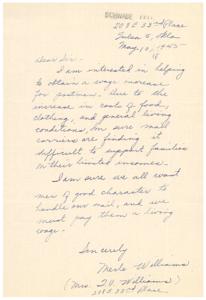 208 E 33rd Place
Tulsa 5, Okla
May 10, 1945
Dear Sir -
I am interested in helping
to obtain a wage increase
for postmen. Due to the
increase in costs of food,
clothing, and general living
conditions, I'm sure mail
carriers are finding it
difficult to support families
on their limited incomes.
I am sure we all want
men of good character to
handle our mail, and we
must pay them a living
wage.
Sincerely
Merle Williams
Williams)